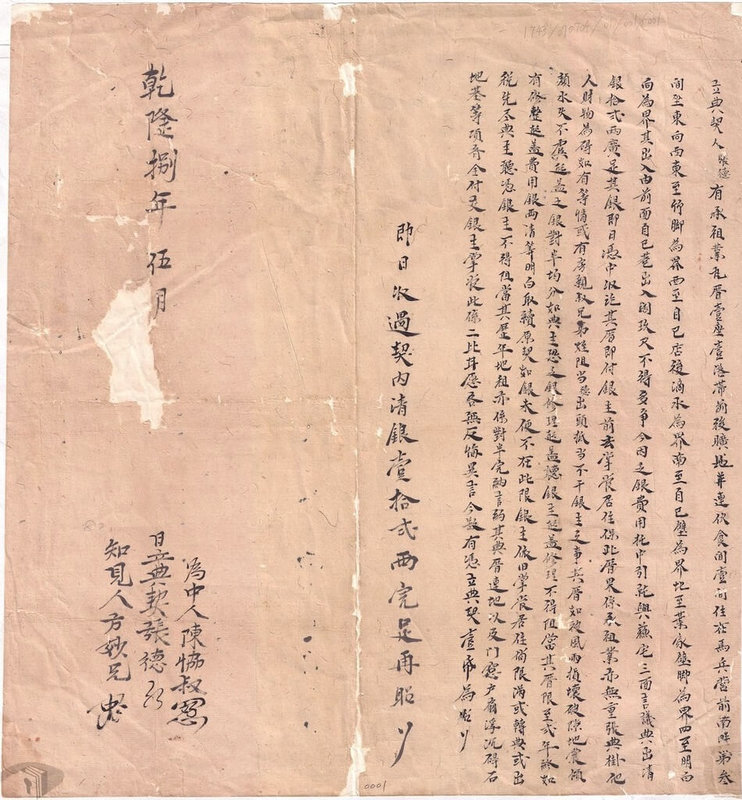 立典契人張德有承祖業瓦厝壹座壹落帶前後曠地并連伏食間壹間住在馬兵營前南畔第叁
間坐東向西東至竹脚為界西至自己店後滴水為界南至自己壁為界北至葉家壁脚為界四至明白
向為界其出入由前面自己巷出入
又不得多爭今因乏銀費用托中引就與蘇宅三面言議典出清
銀拾貳兩廣足其銀即日憑中收訖其厝即付銀主前去掌管居住保此厝果係承祖業亦無重張典掛他
人財物為碍如有等情或有房親叔兄弟姪阻當出頭抵當不干銀主之事其厝如被風雨損壞破陳地震傾
頹水災不虞起蓋之銀對半均分如典主恐乏銀修理起蓋聽銀主起蓋修理不得阻當其厝限至貳年終如
有修整起蓋費用銀兩清算明白取贖原契如銀未便不在此限銀主依旧掌管居住倘限滿或轉典或出
稅先盡典主聽憑銀主不得阻當其歷年地租亦係對半完納言約其典厝連地以及門窓戶扇浮沉磚石
地基等項齊全付交銀主掌管此係二比甘愿各無反悔異言今欲有憑立典契壹紙為炤
即日收過契內清銀壹拾貳兩完足再炤
乾隆捌年伍月
為中人陳協叔
日立典契張德
知見人方妙兄
1743
0001